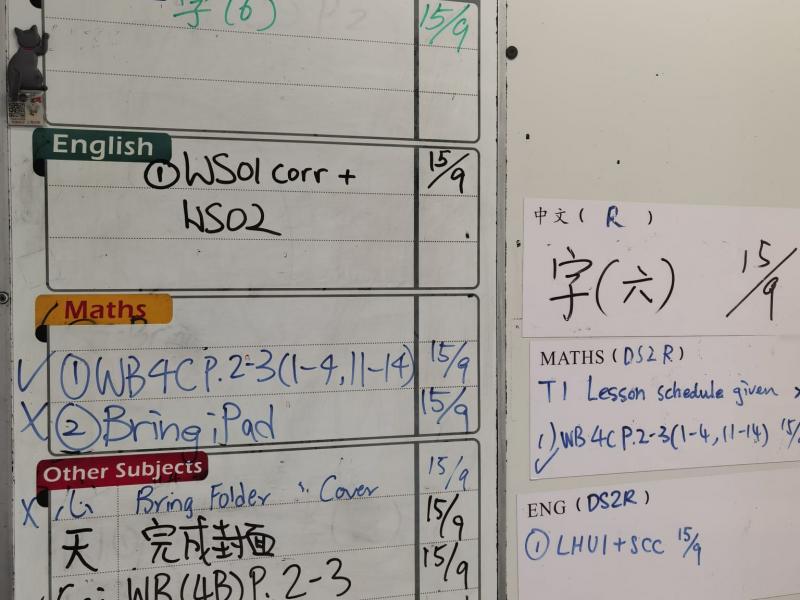 字(6) 15/9
English
① WS01 corr + 15/9
WS02
Maths
✓ ① WB4C P.2-3(1-4,11-14) 15/9
X ② Bring iPad 15/9
Other Subjects 15/9
X 心 Bring Folder Cover
天 完成封面 15/9
WB(4B)P.2-3 15/9
中文 ( R )
字(六) 15/9
MATHS (DS2R)
T1 Lesson schedule given
1) WB4C P.2-3(1-4,11-14)
✓
ENG (DS2R)
① LHU1+SCC 15/9